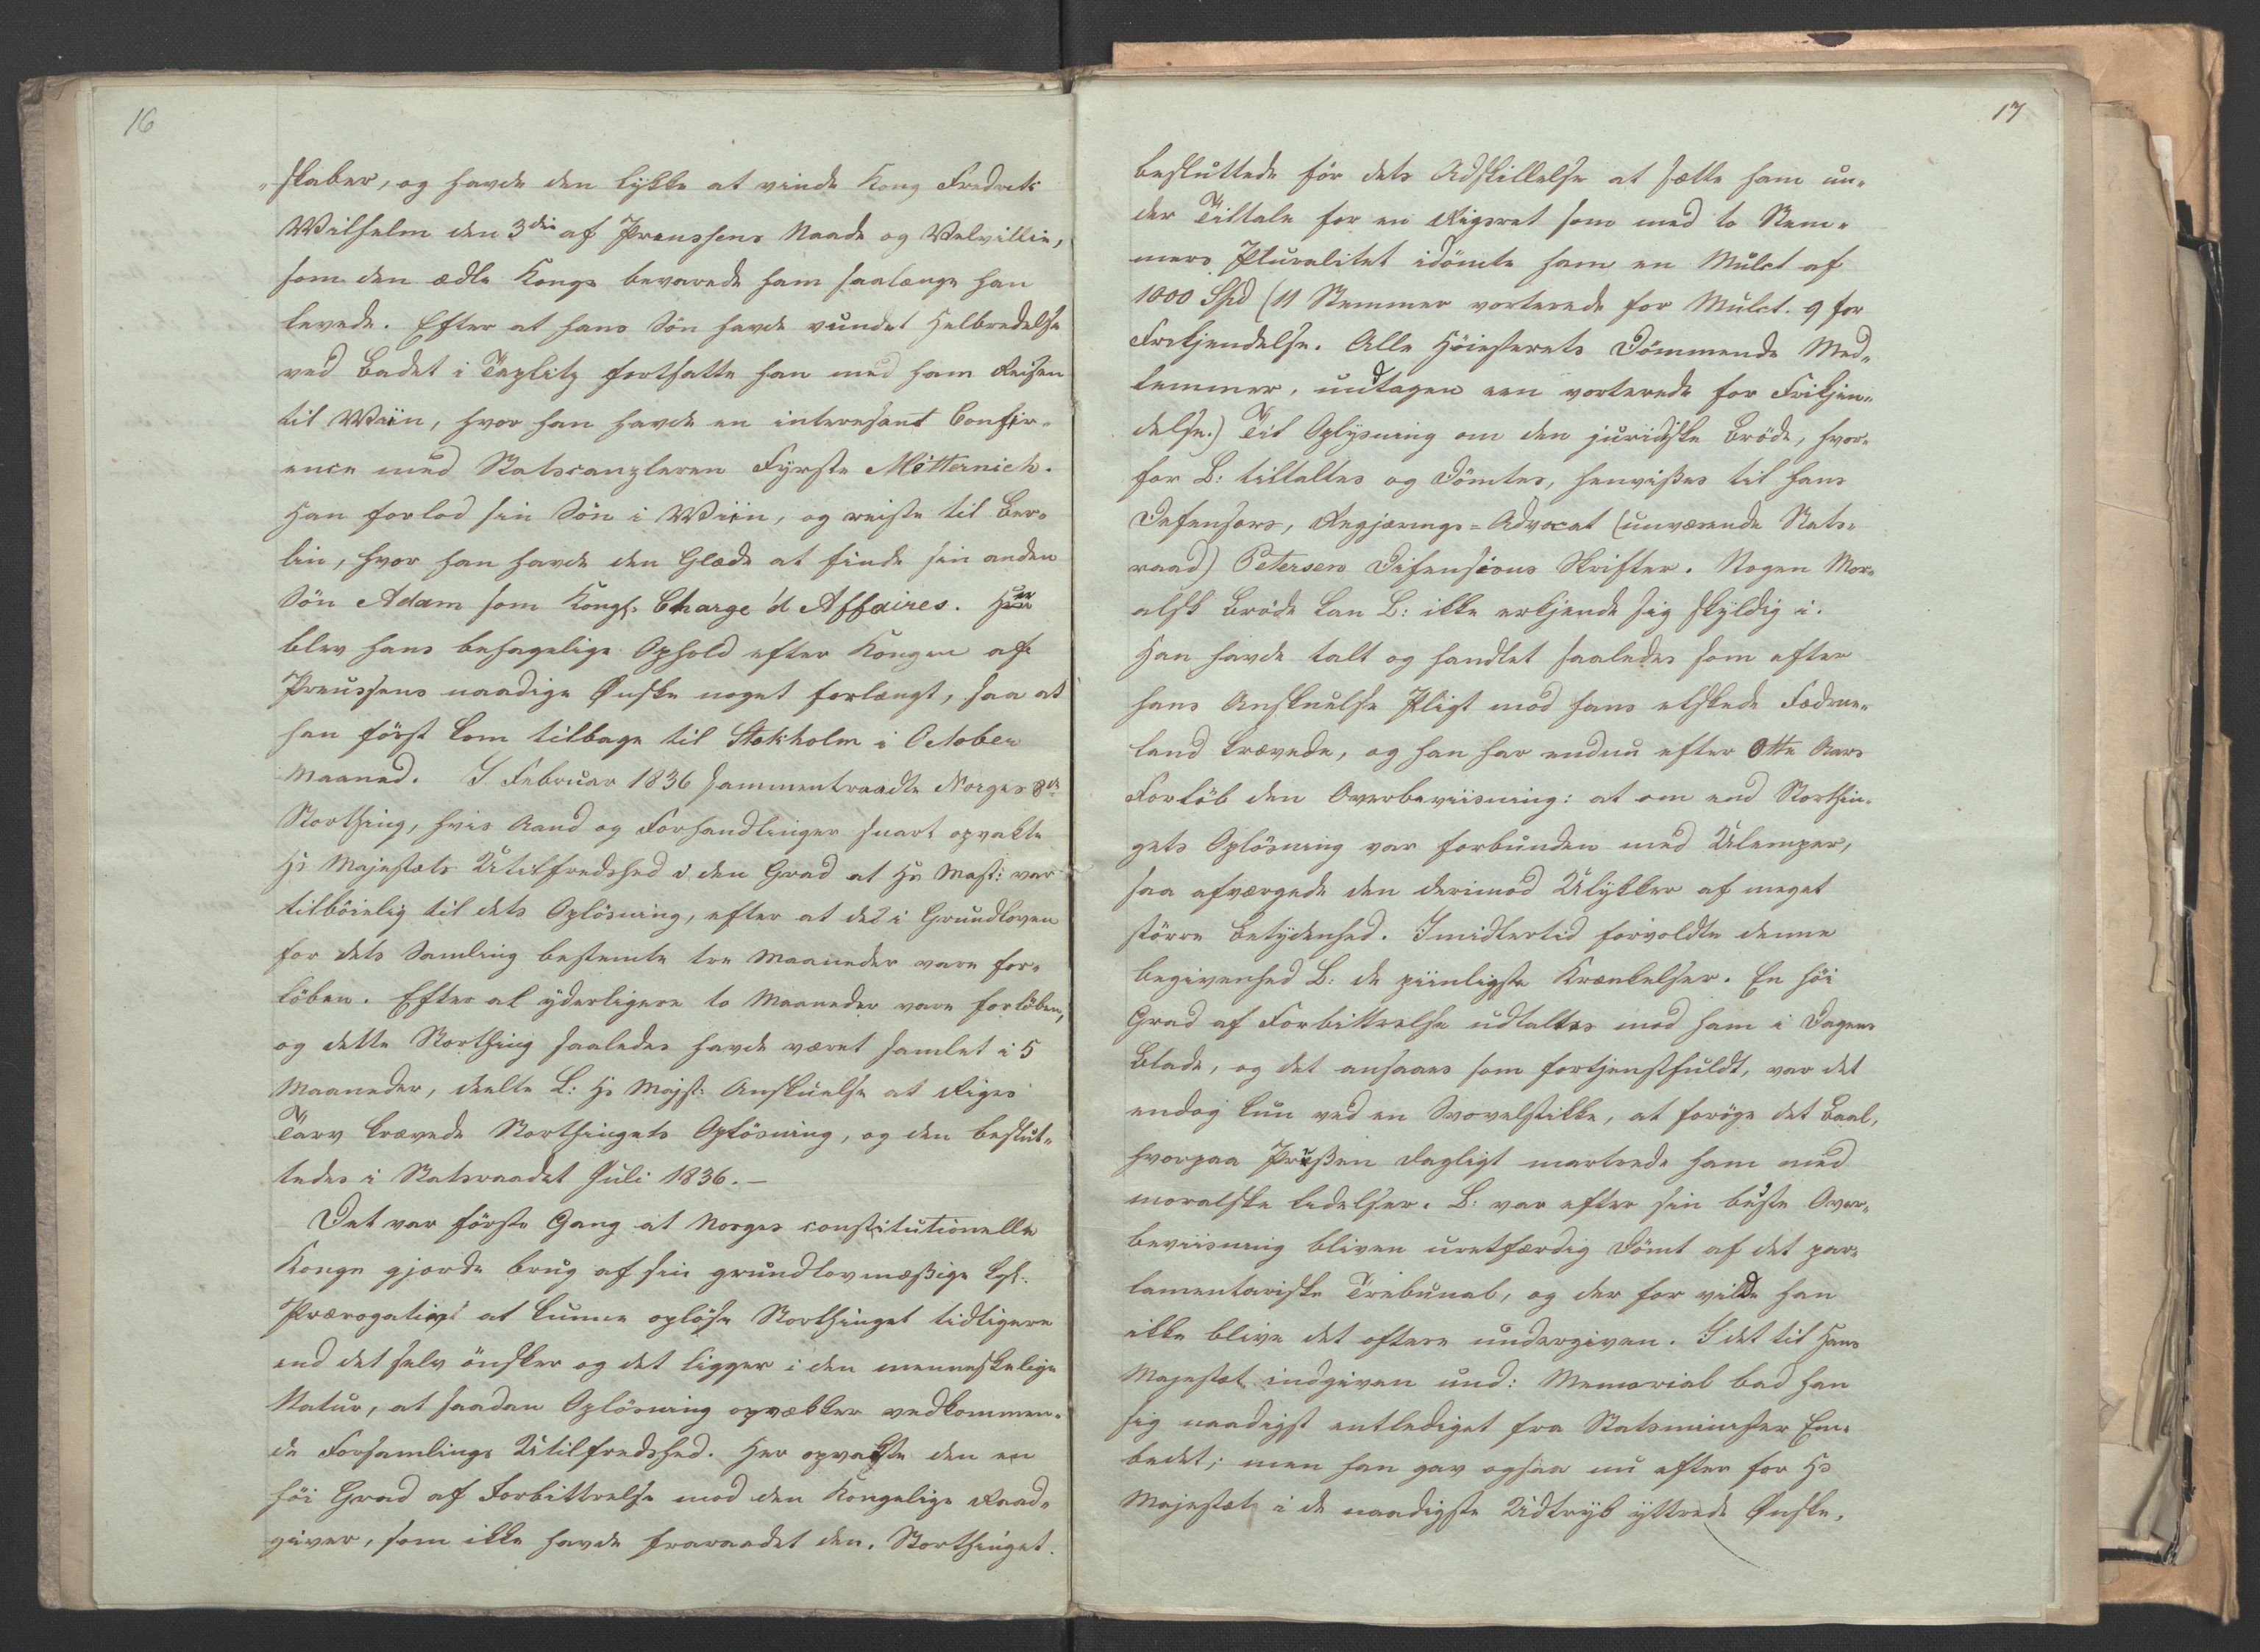 16
„skaber, og havde den Lykke at vinde Kong Fredrik
Wilhelm den 3die af Preussens Naade og Velvillie,
som den ædle Konge bevarede ham saalænge han
levede. Efter at hans Sön havde vundet Helbredelse
ved Badet i Teplitz fortsatte han med ham Reisen
til Wiin, hvor han havde en interesant Confer„
ence med Statscanzleren Fyrste Metternich.
Han forlod sin Sön i Wiin, og reiste til Ber„
lin, hvor han havde den Glæde at finde sin anden
Sön Adam som Kongl. Charge 'd Affaires. Her
blev hans behagelige Ophold efter Kongen af
Preussens naadige Ønske noget forlængt, saa at
han först kom tilbage til Stokholm i October
Maaned. I Februar 1836 sammentraadte Norges 8de
Storthing, hvis Aand og Forhandlinger snart opvakte
Hs Majestæts Utilfredshed i den Grad at Hs Mast: var
tilböielig til dets Oplösning, efter at de i Grundloven
for dets Samling bestemte tre Maaneder vare for„
löben. Efter at yderligere to Maaneder vare forlöben,
og dette Storthing saaledes havde været samlet i 5
Maaneder, deelte L: Hs Majst: Anskuelse at Riges
Tarv krævede Storthingets Oplösning, og den beslut„
tedes i Statsraadet Juli 1836. —
Det var förste Gang at Norges constitutionelle
Konge gjorde brug af sin grundlovmæßige Kgl.
Prærogativ at kunne oplöse Storthinget tidligere
end det selv önsker og det ligger i den menneskelige
Natur, at saadan Oplösning opvækker vedkommen„
de Forsamlings Utilfredshed. Her opvakte den en
höi Grad af Forbittrelse mod den Kongelige Raad„
giver, som ikke havde fraraadet den. Storthinget
17
besluttede för dets Adskillelse at sætte ham un„
der Tiltale for en Rigsret som med to Stem„
mers Pluralitet idömte ham en Mulct af
1000 Spd (11 Stemmer vorterede for Mulct. 9 for
Frikjendelse. Alle Höiesterets Dömmende Med„
lemmer, undtagen een vorterede for Frikjen„
delse.) Til Oplysning om den juridiske Bröde, hvor„
for L: tiltaltes og Dömtes, henvißes til hans
Defensors, Regjærings=Advocat (nuværende Stats„
raad) Petersen Difensions Skrifter. Nogen Mor„
alsk Bröde kan L: ikke erkjende sig skyldig i.
Han havde talt og handlet saaledes som efter
hans Anskuelse Pligt mod hans elskede Fædrne„
land krævede, og han har endnu efter Otte Aars
Forlöb den Overbeviisning: at om end Storthin„
gets Oplösning var forbunden med Ulemper,
saa afværgede den derimod Ulykker af meget
större Betydenhed. Imidlertid forvoldte denne
Begivenhed L: de piinligste Krænkelser. En höi
Grad af Forbittrelse udtaltes mod ham i Dagens
Blade, og det ansaaes som fortjenstfuldt, var det
endog kun ved en Svovelstikke, at foröge det Baal,
hvorpaa Preßen dagligt martrede ham med
moralske Lidelser. L: var efter sin beste Over„
beviisning bleven uretfærdig Dömt af det par„
lamentariske Tribunal, og der for vilde han
ikke blive det oftere undergiven. I det til Hans
Majestæt indgiven und: Memorial bad han
sig naadigst entlediget fra Statsminister Em„
bedet; men han gav ogsaa nu efter for Hs
Majestæts i de naadigste Udtryk yttrede Ønske,